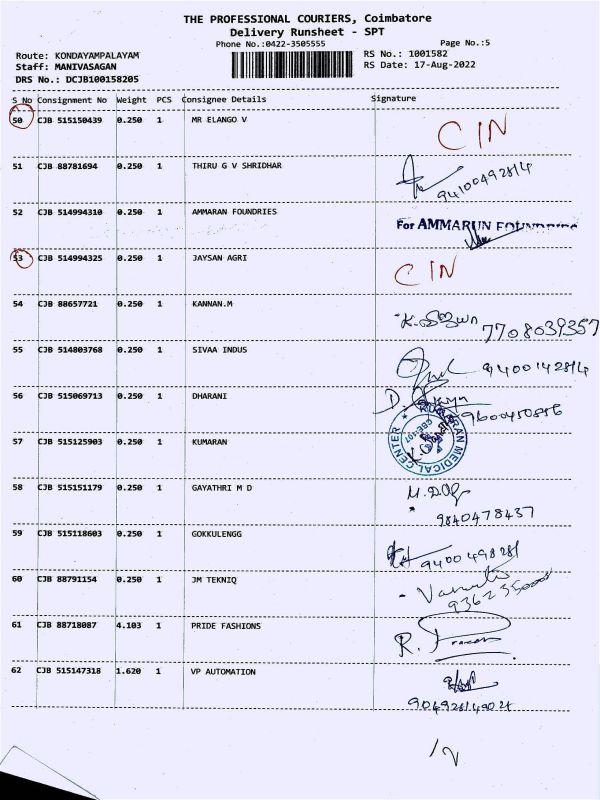 THE PROFESSIONAL COURIERS, Coimbatore
Delivery Runsheet - SPT
Phone No.:0422-3505555
Page No.:5
Route: KONDAYAMPALAYAM
RS No.: 1001582
Staff: MANIVASAGAN
RS Date: 17-Aug-2022
DRS No.: DCJB100158205
S No Consignment No Weight PCS Consignee Details Signature
50 CJB 515150439 0.250 1 MR ELANGO V CIN
51 CJB 88781694 0.250 1 THIRU G V SHRIDHAR
52 CJB 514994310 0.250 1 AMMARAN FOUNDRIES For AMMARUN FOUNDRIES
53 CJB 514994325 0.250 1 JAYSAN AGRI CIN
54 CJB 88657721 0.250 1 KANNAN.M 7708039357
55 CJB 514803768 0.250 1 SIVAA INDUS
56 CJB 515069713 0.250 1 DHARANI
57 CJB 515125903 0.250 1 KUMARAN KUMARAN MEDICAL CENTER
58 CJB 515151179 0.250 1 GAYATHRI M D
9840478437
59 CJB 515118603 0.250 1 GOKKULENGG
60 CJB 88791154 0.250 1 JM TEKNIQ
61 CJB 88718087 4.103 1 PRIDE FASHIONS
62 CJB 515147318 1.620 1 VP AUTOMATION